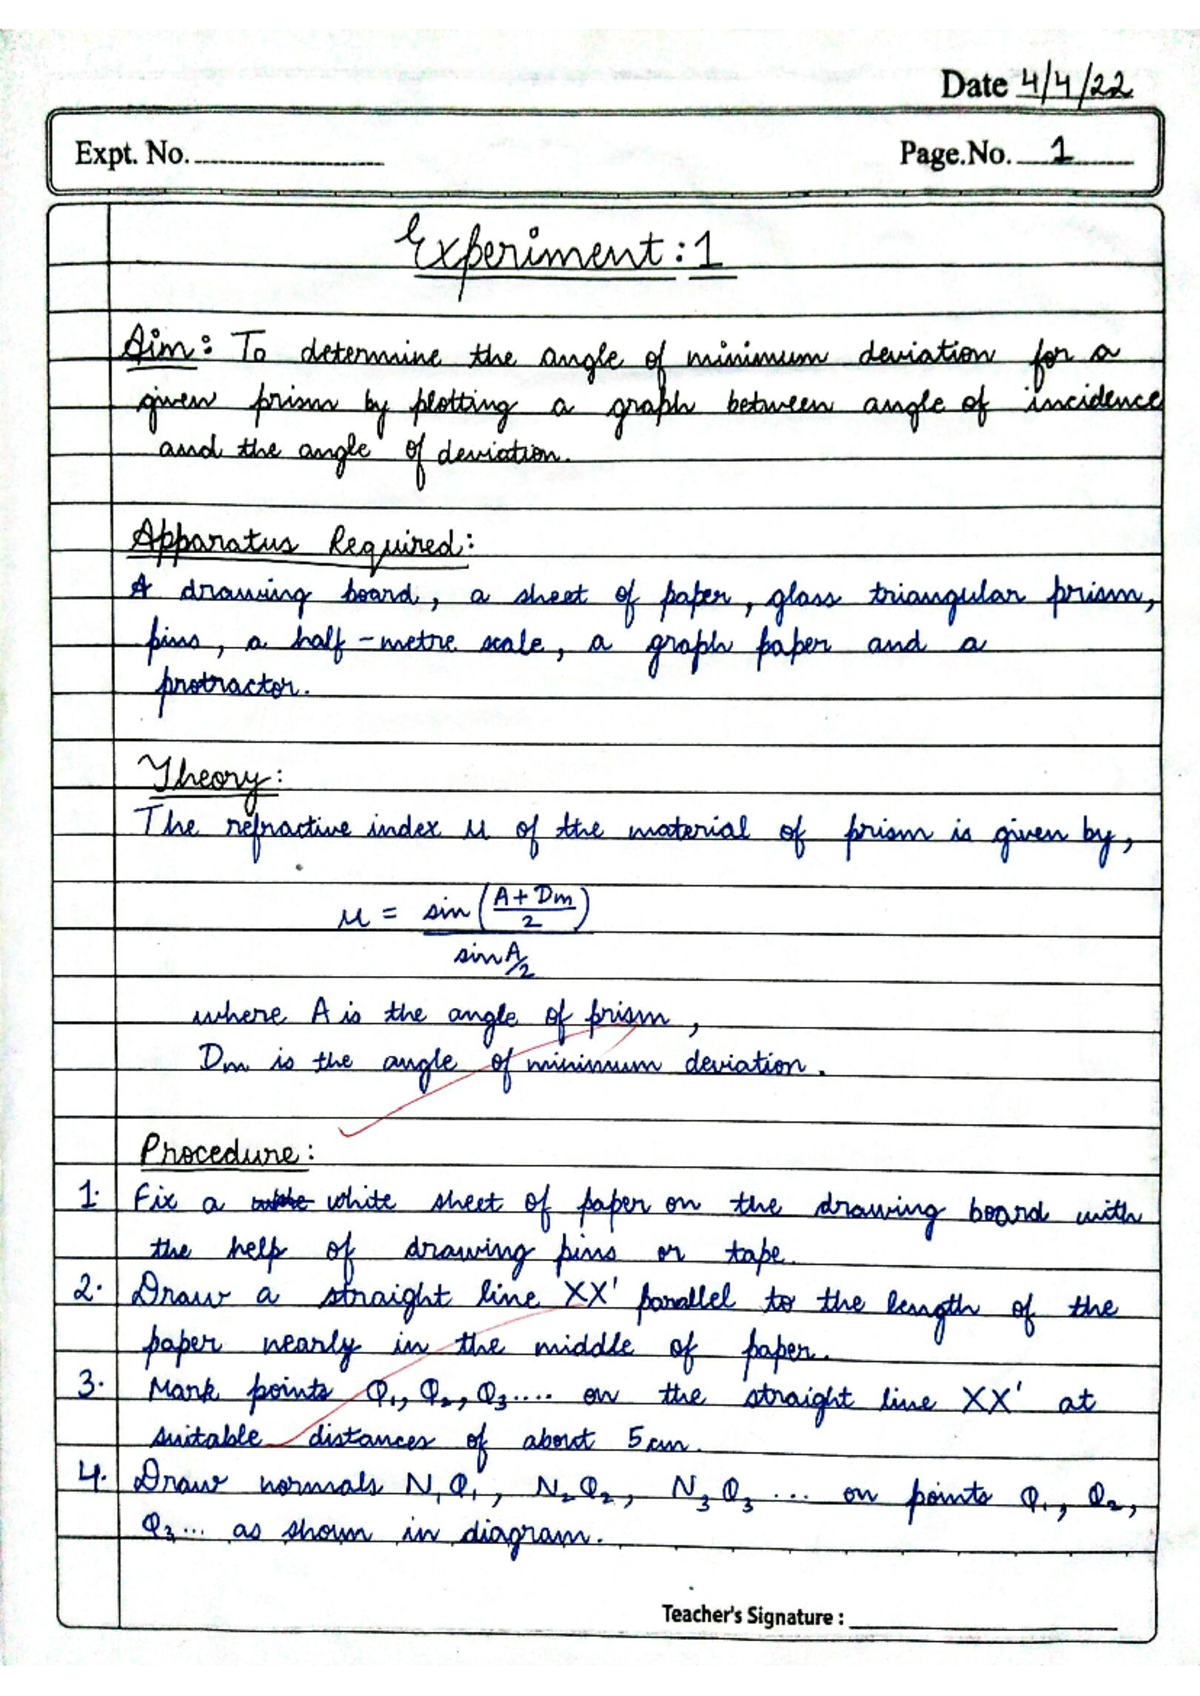 Date 4/4/22
Expt. No. Page.No. 1
Experiment: 1
Aim: To determine the angle of minimum deviation for a
given prism by plotting a graph between angle of incidence
and the angle of deviation.
Apparatus Required:
A drawing board, a sheet of paper, glass triangular prism,
pins, a half-metre scale, a graph paper and a
protractor.
Theory:
The refractive index μ of the material of prism is given by,
μ = sin(A+Dm/2)
sin A/2
where A is the angle of prism,
Dm is the angle of minimum deviation.
Procedure:
1. Fix a white sheet of paper on the drawing board with
the help of drawing pins or tape.
2. Draw a straight line XX' parallel to the length of the
paper nearly in the middle of paper.
3. Mark points Q₁, Q₂, Q₃.... on the straight line XX' at
suitable distances of about 5cm.
4. Draw normals N₁Q₁, N₂Q₂, N₃Q₃ ... on points Q₁, Q₂,
Q₃... as shown in diagram.
Teacher's Signature :